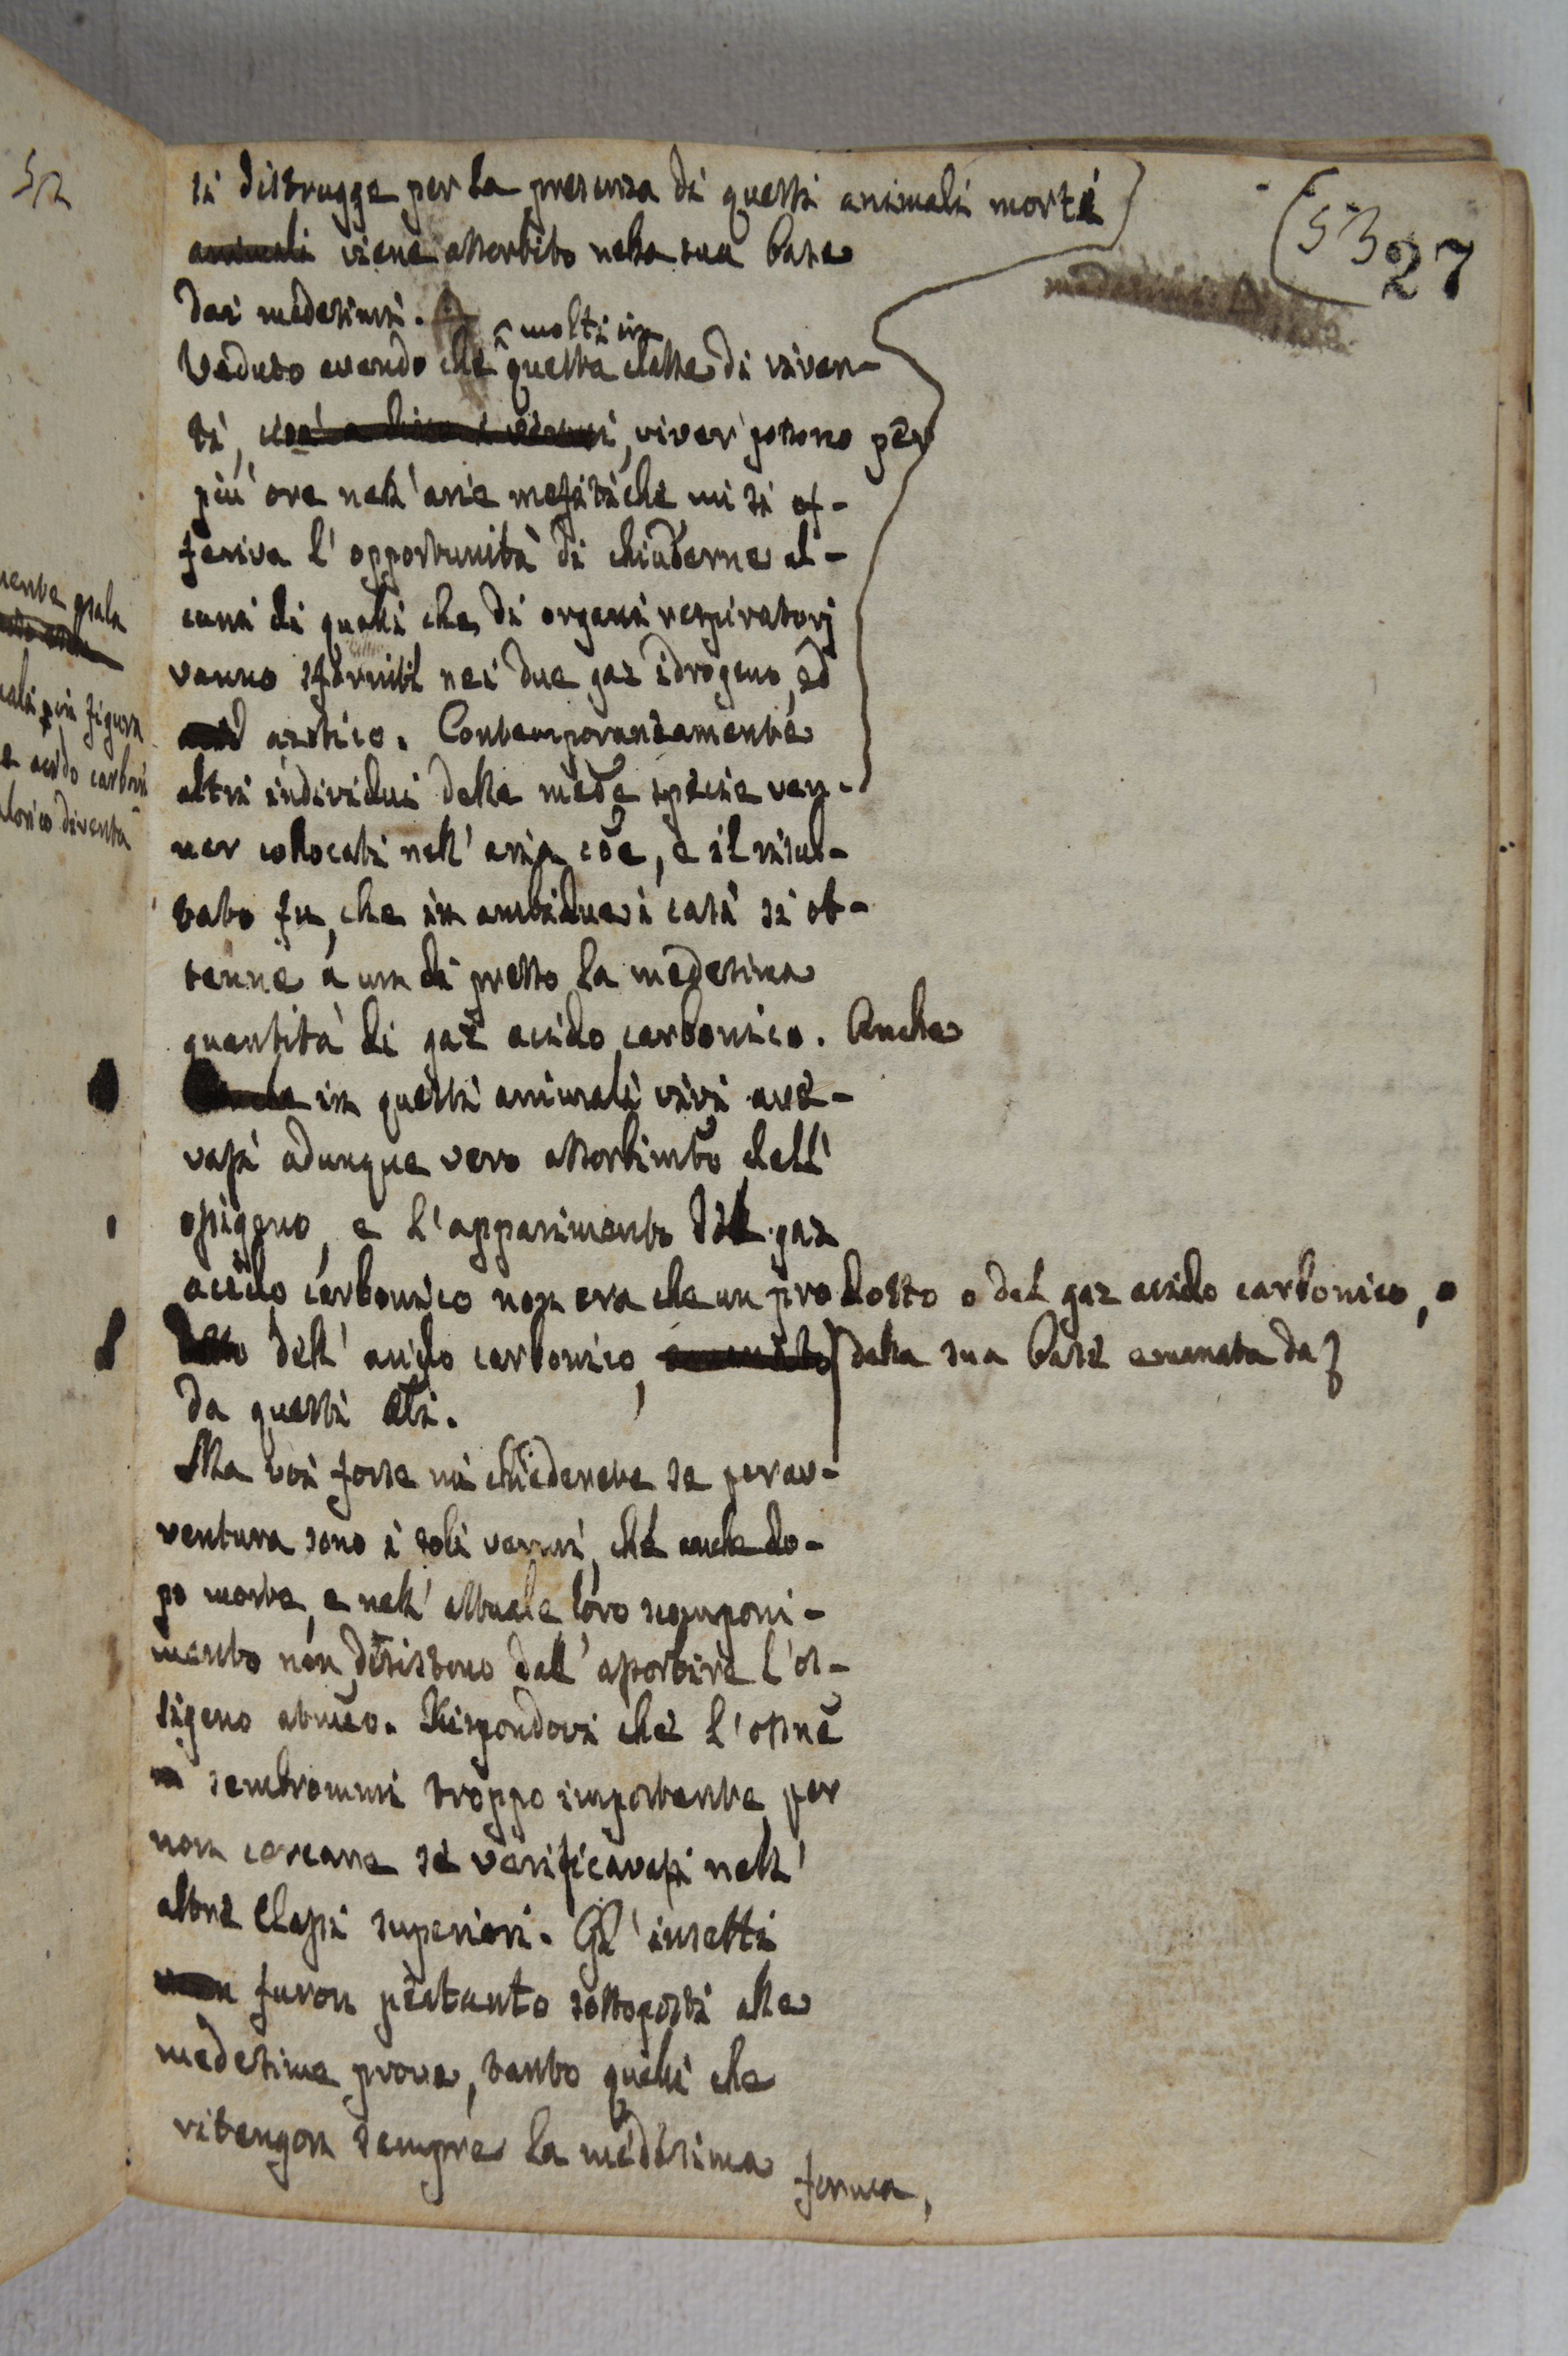 si distrugge per la presenza di questi animali morti
animali viene assorbito nella sua base
dai medesimi.
molti in
Veduto avendo che questa classe di viven-
ti, viver possono per
più ore nell'arie mefitiche mi si of-
feriva l'opportunità di chiuderne al-
cuni di quelli che di organi respiratorj
vanno sforniti nei due gaz idrogeno, ed
azotico. Contemporaneamente
altri individui della mede specie ven-
ner collocati nell'aria coe, e il risul-
tato fu, che in ambidue i casi si ot-
tenne a un di presso la medesima
quantità di gaz acido carbonico. Anche
in questi animali vivi ave-
vasi adunque vero assorbimto dell'
ossigeno, e l'apparimento del gaz
acido carbonico non era che un prodotto o del gaz acido carbonico, o
dell'acido carbonico, della sua base emanata da
da questi esi.
Ma voi forse mi chiederete se perav-
ventura sono i soli vermi, che anche do-
po morte, e nell'attuale loro scomponi-
mento non desistono dall'assorbire l'os-
sigeno atmeo. Rispondovi che l'ossne
sembrommi troppo importante per
non cercare se verificavasi nell'
altre classi superiori. Gl'insetti
furon pertanto sottoposti alle
medesime prove, tanto quelli che
ritengon sempre la medesima
forma,
(53
27
52